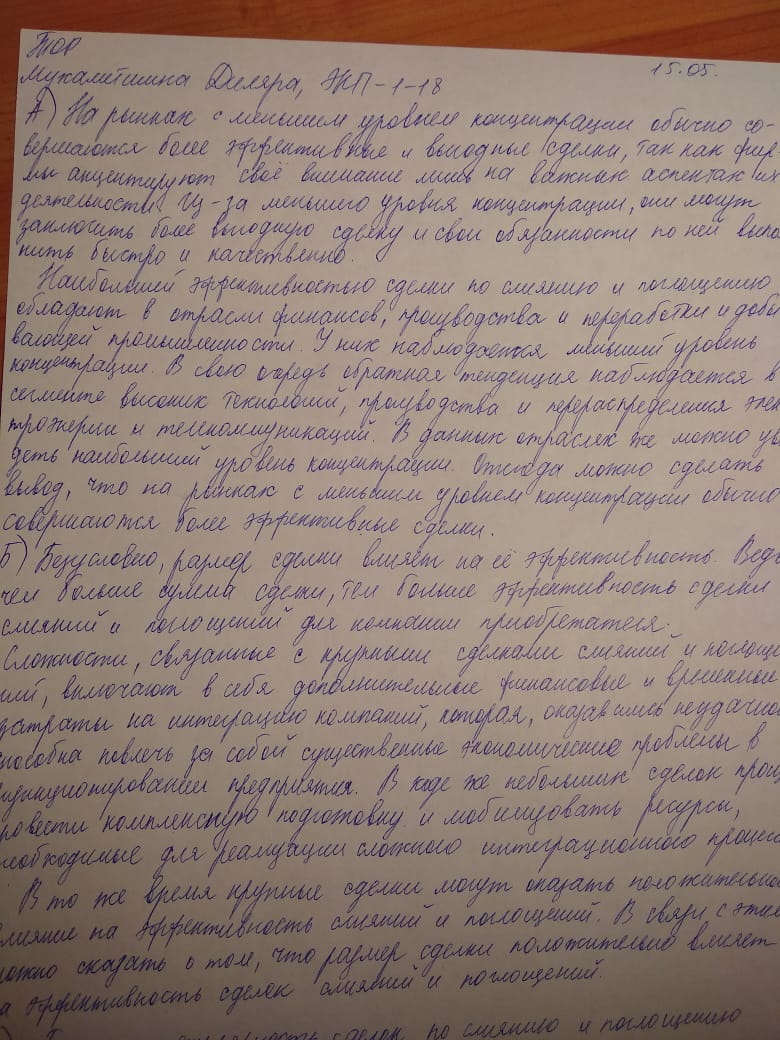 ТОР
15.05.
Мухаметшина Диляра, ЭКП-1-18
А) На рынках с меньшим уровнем концентрации обычно со-
вершаются более эффективные и выгодные сделки, так как фир-
мы акцентируют своё внимание лишь на важных аспектах их
деятельности. Из-за меньшего уровня концентрации, они могут
заключить более выгодную сделку и свои обязанности по ней выпо
нить быстро и качественно.
Наибольшей эффективностью сделки по слиянию и поглощению
обладают в отрасли финансов, производства и переработки и добы
вающей промышленности. У них наблюдается меньший уровень
концентрации. В свою очередь обратная тенденция наблюдается в
сегменте высоких технологий, производства и перераспределения элек
троэнергии и телекоммуникаций. В данных отраслях же можно уви
деть наибольший уровень концентрации. Отсюда можно сделать
вывод, что на рынках с меньшим уровнем концентрации обычно
совершаются более эффективные сделки.
Б) Безусловно, размер сделки влияет на её эффективность. Ведь
чем больше сумма сделки, тем больше эффективность сделки
слияний и поглощений для компании приобретателя.
Сложности, связанные с крупными сделками слияний и поглоще
ний, включают в себя дополнительные финансовые и временные
затраты на интеграцию компаний, которая, оказавшись неудачной
способна повлечь за собой существенные экономические проблемы в
функционировании предприятия. В ходе же небольших сделок проще
провести комплексную подготовку и мобилизовать ресурсы,
необходимые для реализации сложного интеграционного процесса
В то же время крупные сделки могут оказать положительное
влияние на эффективность слияний и поглощений. В связи с этим
можно сказать о том, что размер сделки положительно влияет
на эффективность сделок слияний и поглощений.
сделок по слиянию и поглощению